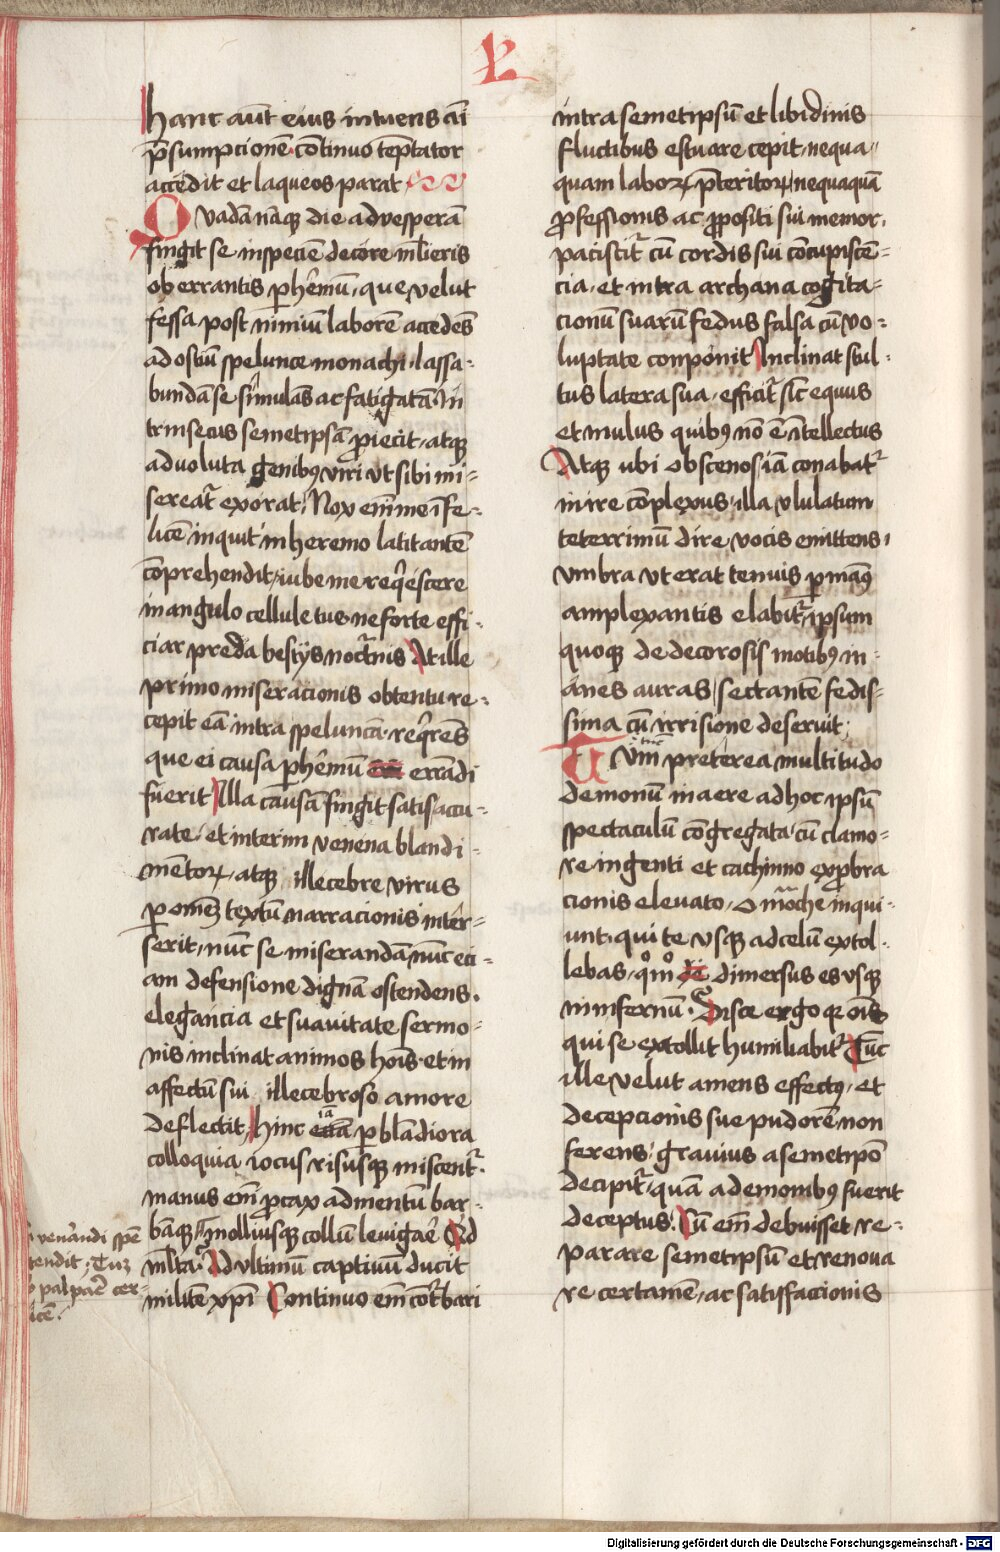 hanc aūt eius intuens aīi
p̄sumpcionē continuo tēptator
accedit et laqueos parat
Quadā nāqꝫ die aduesperā
fingit se inspeciē decore ml̄ieris
oberrantis ꝑ hēmū, que velut
fessa post nimiū laborē accedēs
ad ostiū spelunce monachi lassa-
bundā se simulās ac fatigatā In
trinsecus semetipsā ꝓiecit atqꝫ
aduoluta genibꝰ viri vt sibi mi-
sereat̄ exorat, Nox em̄ me īfe-
licē inquit in heremo latitantē
cōprehendit, iube me reqͥescere
in angulo cellule tus ne forte effi-
ciar preda bestijs noct̄nis At ille
primo miseracionis obtentu re-
cepit eā intra speluncā reqͥrēs
que ei causa ꝑ hēmū errādi
fuerit Illa causā fingit satis accu-
rate, et interim venena blandi-
mētoꝝ, atqꝫ illecebre virus
ꝑ omēꝫ textū narracionis inter-
serit, nūc se miserandā nūc eci-
am defensione dignā ostendens.
elegancia et suauitate sermo-
nis inclinat animos hōis et in
affectū sui illecebroso amore
deflectit, hinc iā ꝑ blādiora
colloquia iocus risusqꝫ miscent̄.
manus em̄ ꝓcax ad mentū bar-
bāqꝫ molliusqꝫ collū leuigaē Qͥd
ml̄ta Ad vltimū captiuū ducit
militē xp̄i Continuo em̄ cōt̄bari
venerandi spē
tendit, Tuꝫ
palpāē cer-
icē.
intra semetipsū et libidinis
fluctibus estuare cepit, nequa-
quam laboꝝ p̄teritoꝝ, nequaquā
ꝓfessionis ac ꝓpositi sui memor.
paciscit̄ cū cordis sui concupiscē-
cia, et intra archana cogita-
cionū suarū fedus falsa cū vo-
luptate componit Inclinat stul-
tus latera sua, efficit̄ sīc equus
et mulus quibꝰ nō ē ītellectus
Atqꝫ ubi obscenos iā conabat̄
inire complexus, illa vlulatum
teterrimū dire vocis emittens,
vmbra vt erat tenuis ꝑ manꝰ
amplexantis elabit̄, ipsum
quoqꝫ de decorosis motibꝰ in-
anes auras sectantē fedis-
sima cū irrisione deseruit,
Tum preterea multitudo
demonū in aere ad hoc ipsū
spectaculū cōgregata cū clamo-
re ingenti et cachinno exꝓbra
cionis eleuato, O mōche inqui-
unt, qui te vsqꝫ ad celū extol-
lebas, qͦmͦ dimersus es vsqꝫ
in infernū. Disce ergo qꝛ oīs
qui se extollit humiliabit̄ Tūc
ille velut amens effectꝰ, et
decepcionis sue pudorē non
ferens, grauius a semetipō
decipit̄, quā a demonibꝰ fuerit
deceptus. Cū em̄ debuisset re-
parare semetipsū et renoua
re certamē, ac satisfaccionis
Digitalisierung gefördert durch die Deutsche Forschungsgemeinschaft - DFG